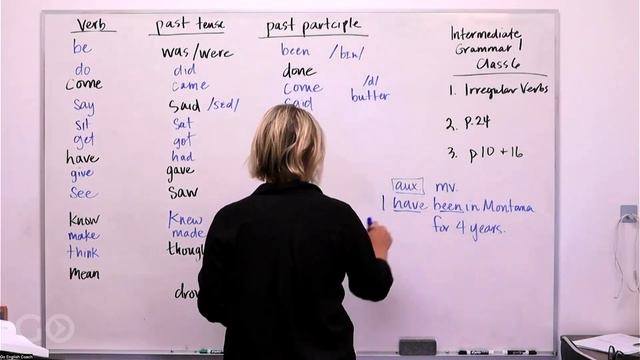 verb past tense past partciple
be was/were been /bin/
do did done
come came come /d/
say said /sɛd/ said butter
sit sat
get got
have had
give gave
see saw
know knew
make made
think
mean
Intermediate
Grammar 1
Class 6
1. Irregular Verbs
2. p.24
3. p10 + 16
aux mv.
I have been in Montana
for 4 years.
GO
Go English Coach